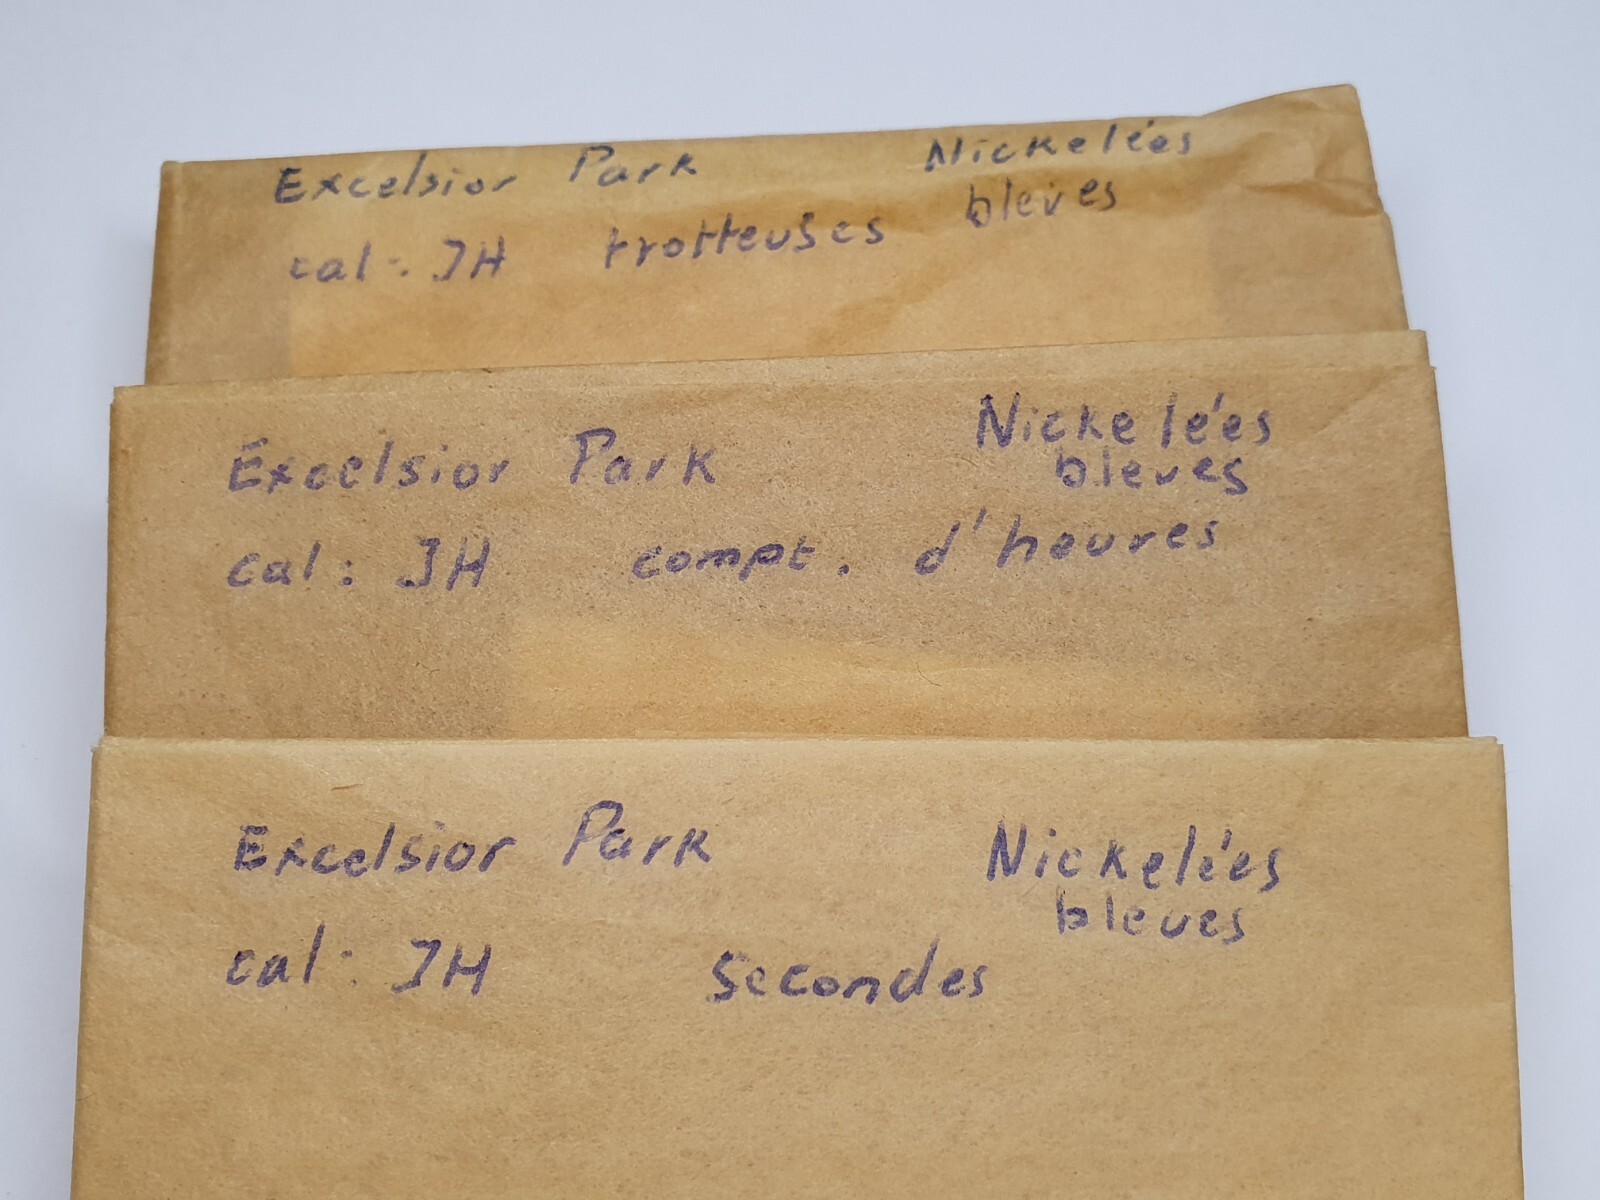 Excelsior Park Nickelées
cal: JH trotteuses bleues
Excelsior Park Nickelées
bleues
cal: JH compt. d'heures
Excelsior Park Nickelées
bleues
cal: JH Secondes